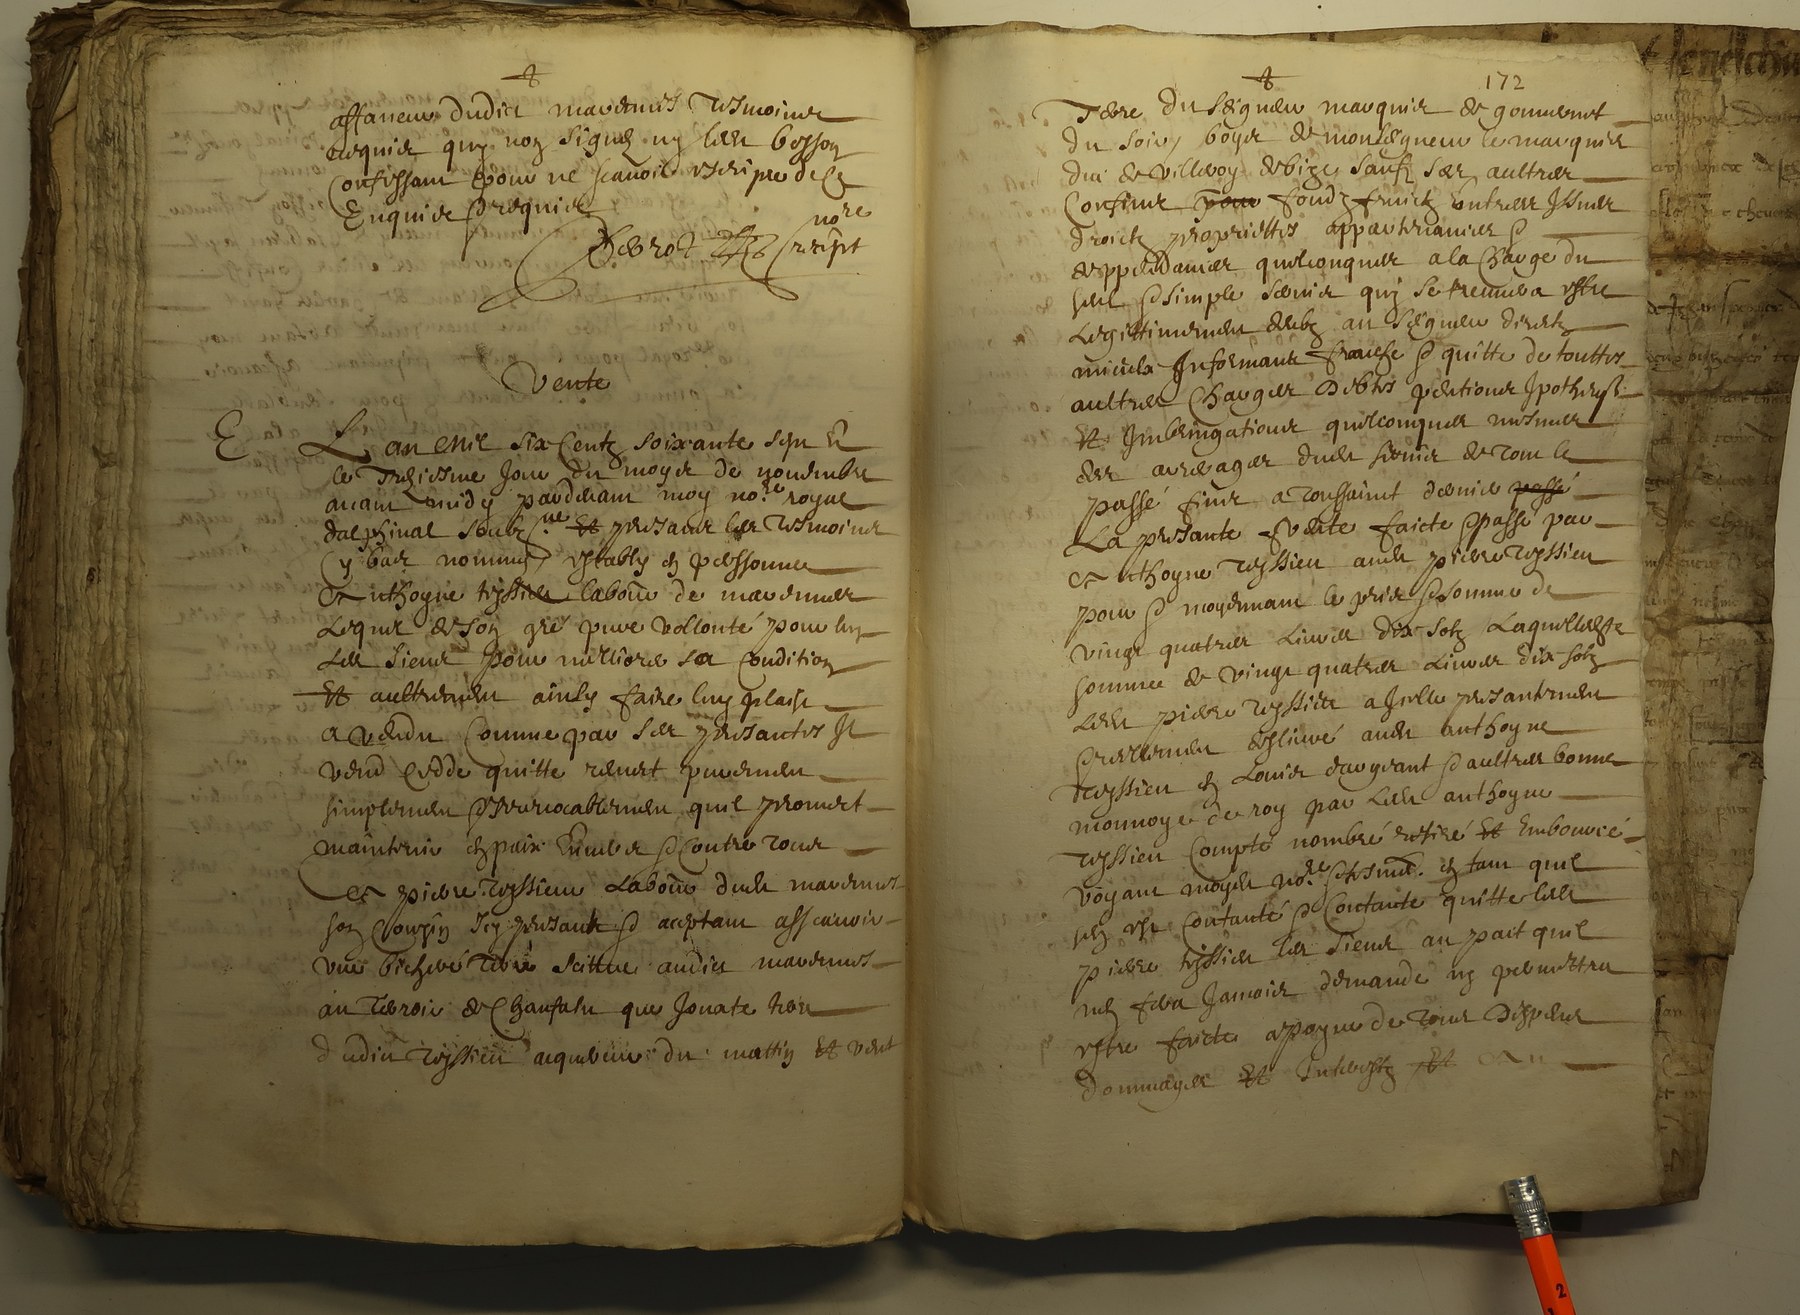 affaneur dudict marennes tesmoins
requis quy non signé ny led besson
confessant pour ne scavoir escripre de ce
Enquis & requis
nore
recept
Vente
E L an mil six Centz soixante sept Et
le treiziesme Jour du moys de novembre
avant midy pardevant moy no.re royal
dalphinal soubz.né Et presants les tesmoins
cy bas nommes estably en personne
Anthoyne teyssier labour de marennes
Lequel de son gré pure vollonté pour luy
Les siens pour melliorer sa Condition
Et aultrement ainsy faire luy plaist
a vendu Comme par ces presantes Il
vend cedde quitte remet purement
simplement & irrevocablement quil promet
maintenir en paix Envers & contre tous
A pierre teyssier Labour dudt marennes
son Cousin Icy presant & aceptant assavoir
une bicheré terre scittue audict marennes
au terroir de Chanfalu que Jouxte terre
dudict teyssier acquereur du mattin Et vent
172
Terre du seigneur marquis de gouvernet
du soir, boys de monseigneur le marquis
duc de villeroy de bize sauf ses aultres
Confins pour fondz fruictz entrees Issues
droictz proprietes appartenances &
deppendances quelconques a la Charge du
seul & simple servis quy se treuvera estre
Legittimement deubz au seigneur direct
franche & quitte de touttes
aultres Charges debtes pentions Ipotheques
Et Imbringations quelconques mesmes
des arreages dudt servis de tout le
passé fins a toussainct dernier passé
La presante vente faicte & passé par
Anthoyne teyssier audt pierre teyssier
pour & moyennant le prix & somme de
vingt quatres Livres dix solz Laquelle
somme de vingt quatres Livres dix solz
Ledt pierre teyssier a Icelle presantement
& reellement deslivré audt anthoyne
teyssier en Louis dargeant & aultres bonne
monnoye de roy par Ledt anthoyne
teyssier Compté nombré retiré Et Embourcé
voyant moydt no.re & tesmoins en tant quil
sen est Contanté & Contante quitte ledt
pierre teyssier les siens au pact quil
nen fera Jamais demande ny permettra
estre faicte a poyne de tous despens
dommages Et Interestz Et